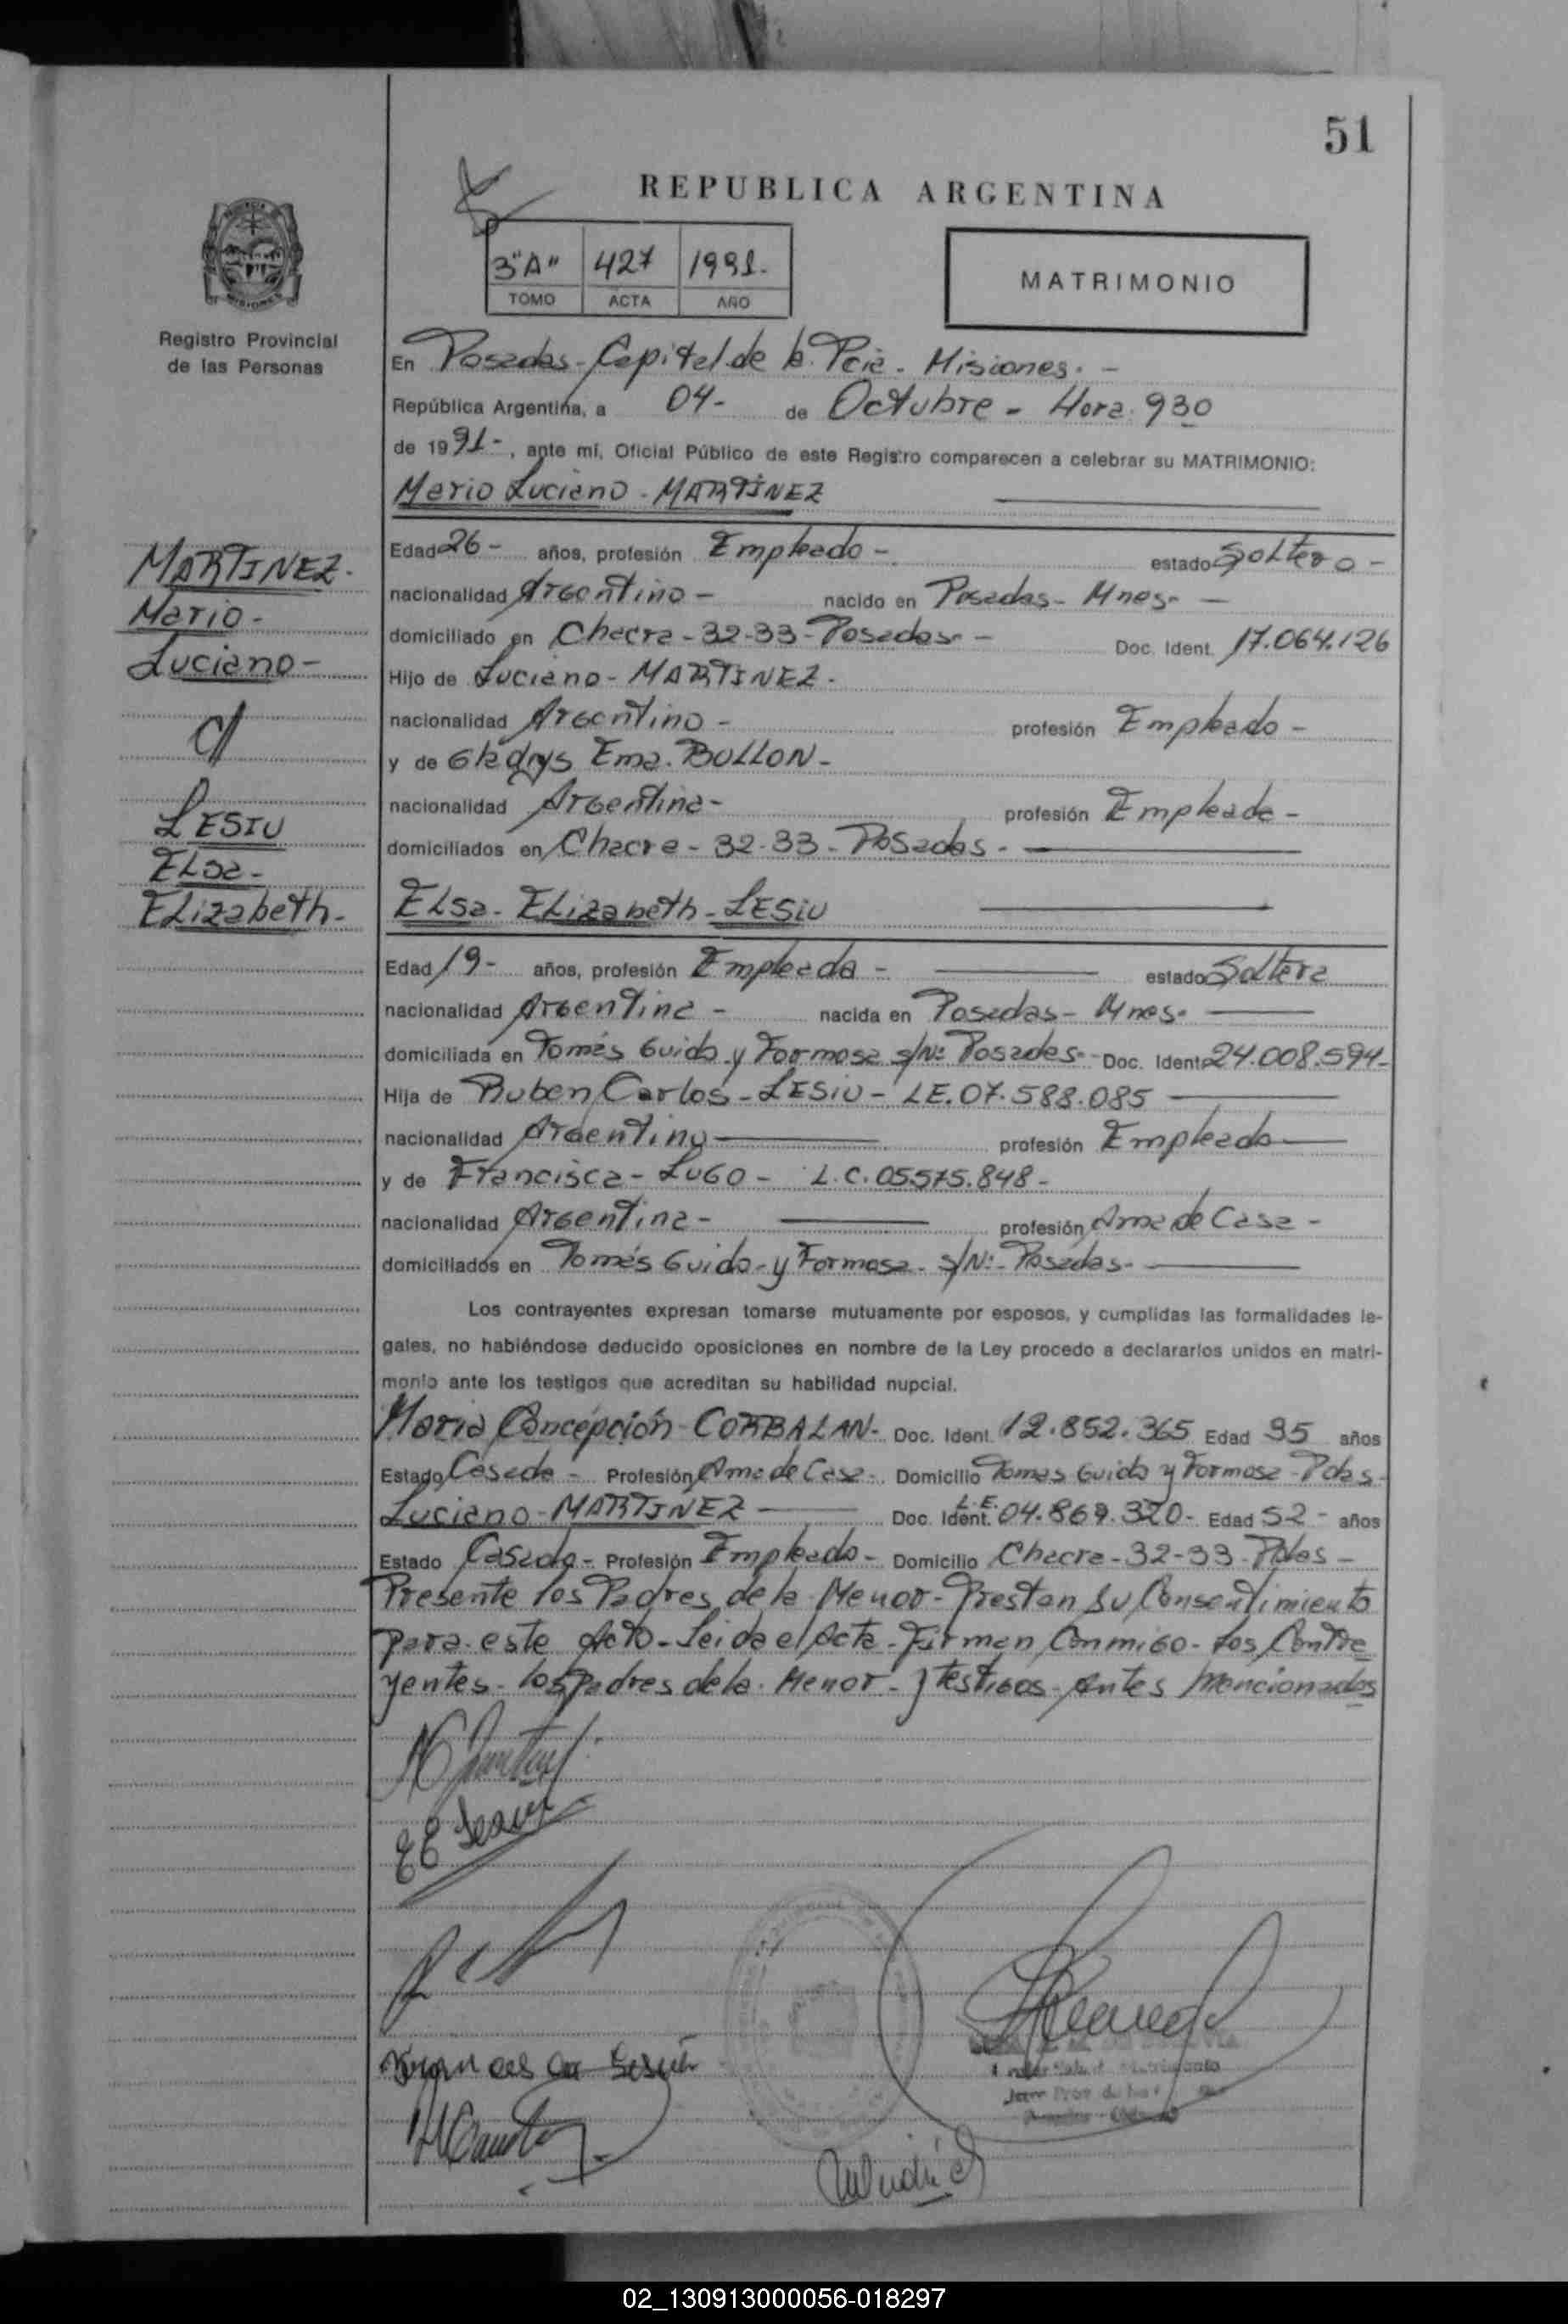 51
REPUBLICA ARGENTINA
3"A" 427 1991.-
TOMO ACTA AÑO
MATRIMONIO
Registro Provincial
de las Personas
En Posadas - Capital de la Pcia. Misiones. -
República Argentina, a 04- de Octubre - Hora: 930
de 1991-, ante mí, Oficial Público de este Registro comparecen a celebrar su MATRIMONIO:
Mario Luciano - MARTINEZ
MARTINEZ.
Mario -
Luciano -
c/
LESIU
ELsa -
ELizabeth -
Edad 26- años, profesión Empleado - estado Soltero -
nacionalidad Argentino - nacido en Posadas - Mnes. -
domiciliado en Chacra - 32-33 - Posadas - Doc. Ident. 17.064.126
Hijo de Luciano - MARTINEZ -
nacionalidad Argentino - profesión Empleado -
y de Gladys Ema. BULLON -
nacionalidad Argentina - profesión Empleada -
domiciliados en Chacra - 32-33 - Posadas -
ELsa - ELizabeth - LESIU
Edad 19- años, profesión Empleada - estado Soltera
nacionalidad Argentina - nacida en Posadas - Mnes.
domiciliada en Tomás Guido y Formosa s/N: Posadas - Doc. Ident. 24.008.594-
Hija de Ruben Carlos - LESIU - LE. 07.588.085
nacionalidad Argentino profesión Empleado
y de Francisca - LUGO - L.C. 05.575.848 -
nacionalidad Argentina - profesión Ama de Casa -
domiciliados en Tomás Guido - y Formosa - s/N: - Posadas -
Los contrayentes expresan tomarse mutuamente por esposos, y cumplidas las formalidades le-
gales, no habiéndose deducido oposiciones en nombre de la Ley procedo a declararlos unidos en matri-
monio ante los testigos que acreditan su habilidad nupcial.
Maria Concepción - CORBALAN - Doc. Ident. 12.852.365 Edad 35 años
Estado Casada - Profesión Ama de Casa - Domicilio Tomas Guido y Formosa - Pdas -
Luciano - MARTINEZ Doc. Ident. L.E. 04.869.320 - Edad 52 - años
Estado Casado - Profesión Empleado - Domicilio Chacra - 32-33 - Pdas -
Presente los Padres de la Menor - Prestan su Consentimiento
para este Acto - Leida el Acta - Firman Conmigo - Los Contra
yentes - los Padres de la Menor - y testigos - Antes Mencionados
02_130913000056-018297